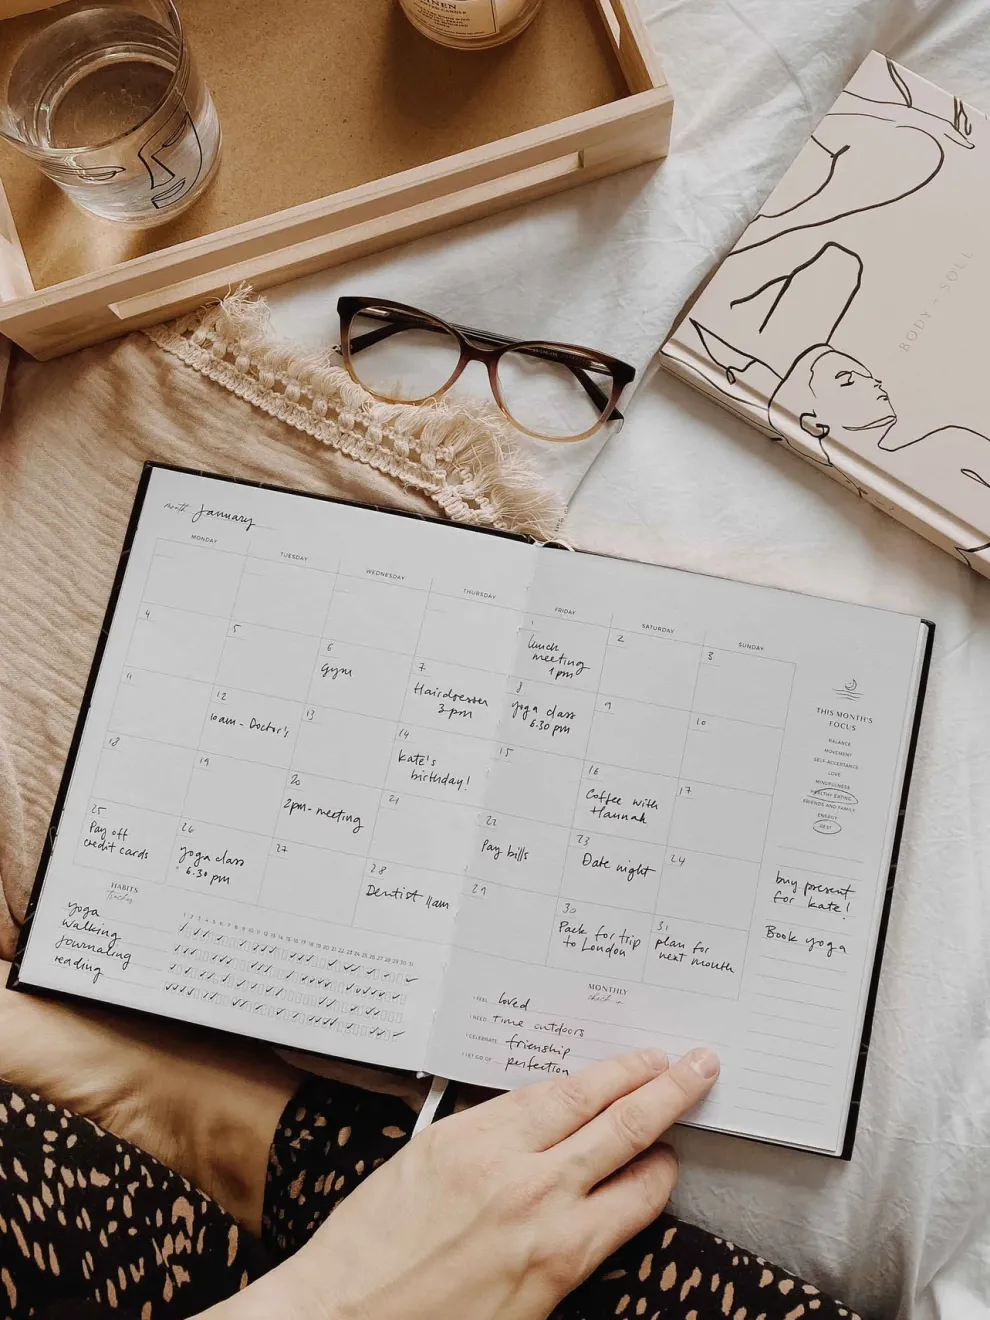 LINEN
BODY + SOUL
month January
MONDAY TUESDAY WEDNESDAY THURSDAY FRIDAY SATURDAY SUNDAY
1
lunch
meeting
1pm
2
3
4
5
6
gym
7
Hairdresser
3pm
8
yoga class
6.30 pm
9
10
11
12
10am - Doctor's
13
14
Kate's
birthday!
15
16
Coffee with
Hannah
17
18
19
20
2pm - meeting
21
22
Pay bills
23
Date night
24
25
Pay off
credit cards
26
yoga class
6.30 pm
27
28
Dentist 11am
29
30
Pack for trip
to London
31
plan for
next month
THIS MONTH'S
FOCUS
BALANCE
MOVEMENT
SELF-ACCEPTANCE
LOVE
MINDFULNESS
HEALTHY EATING
FRIENDS AND FAMILY
ENERGY
REST
buy present
for kate!
Book yoga
HABITS
tracker
1 2 3 4 5 6 7 8 9 10 11 12 13 14 15 16 17 18 19 20 21 22 23 24 25 26 27 28 29 30 31
yoga
walking
journaling
reading
MONTHLY
check in
I FEEL loved
I NEED time outdoors
I CELEBRATE frienship
I LET GO OF perfection